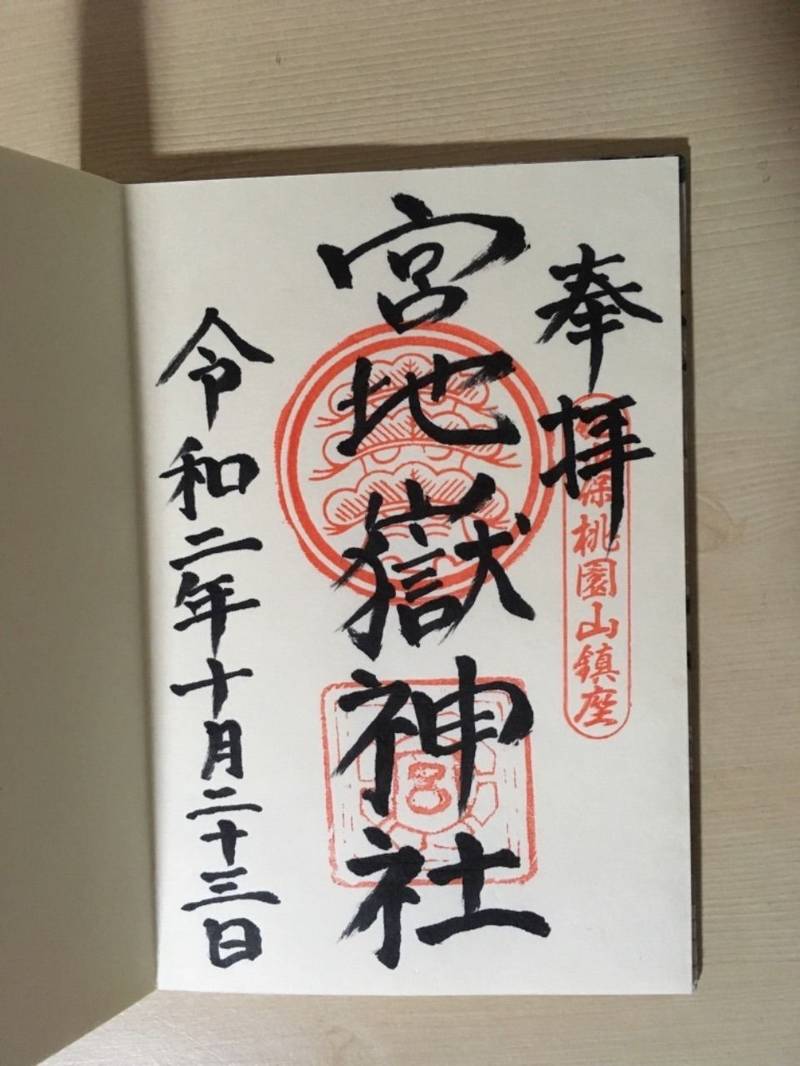 奉拝
桃園山鎮座
宮地嶽神社
令和二年十月二十三日